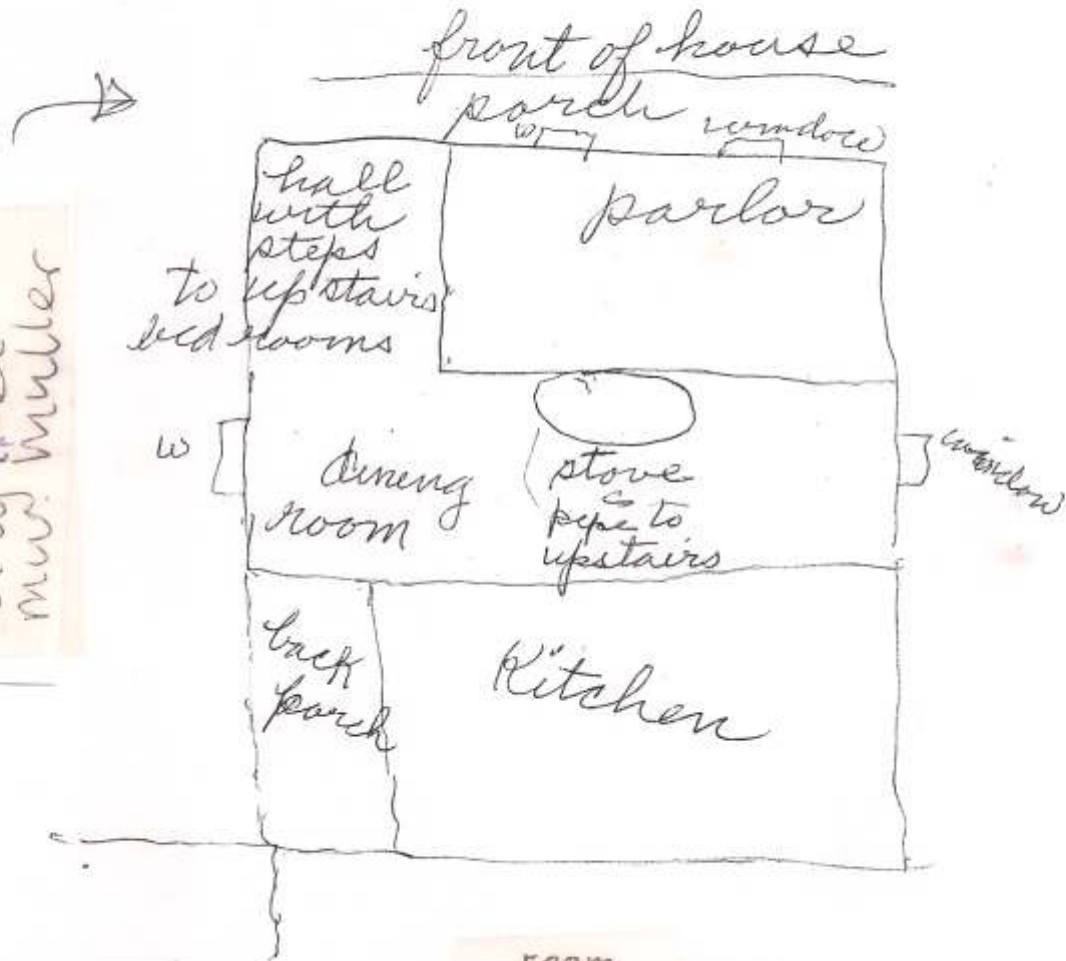 front of house
porch
w
window
hall
with
steps
to upstairs
bedrooms
parlor
w
dining
room
stove
pipe to
upstairs
window
back
porch
Kitchen
room